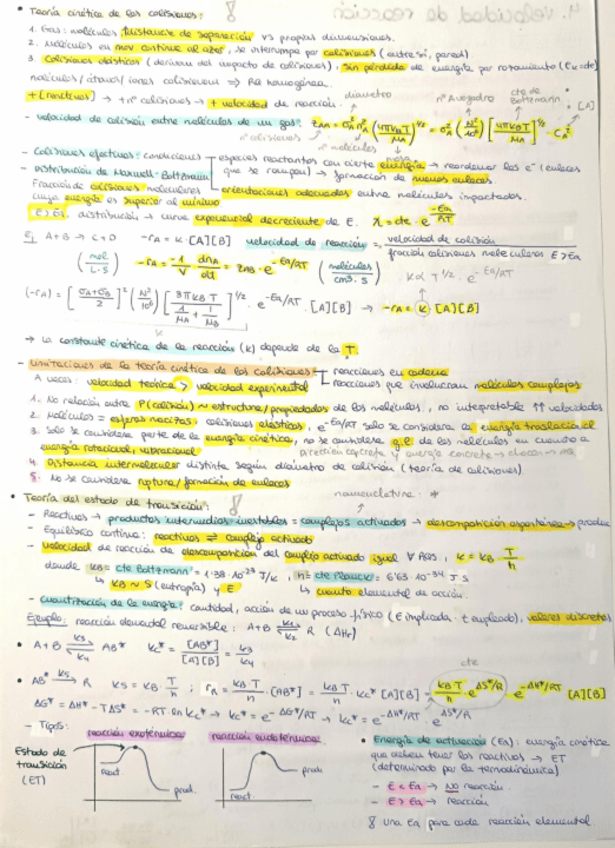 • Teoría cinética de las colisiones:
1. Gas: moléculas, distancia de separación vs propias dimensiones.
2. Moléculas en mov. continuo al azar, se interrumpe por colisiones (entre sí, pared).
3. Colisiones elásticas (derivan del impacto de colisiones), sin pérdida de energía por rozamiento (Ec=cte)
moléculas/átomos/iones colisionan => RQ homogénea.
+ [reactivos] → + nº colisiones → + velocidad de reacción.
diámetro nº Avogadro cte de Boltzmann [A]
- velocidad de colisión entre moléculas de un gas: ZAA = σA² nA² (4πKBT/MA)^1/2 = σA² (N²/10⁶) [4πKBT/MA]^1/2 · CA²
nº colisiones nº moléculas masa
- Colisiones efectivas: condiciones especies reactantes con cierta energía → reordenar los e⁻ (enlaces
que se rompan) → formación de nuevos enlaces.
orientaciones adecuadas entre moléculas impactadas.
- Distribución de Maxwell-Boltzmann
Fracción de colisiones moleculares
cuya energía es superior al mínimo
E > Ea. distribución → curva exponencial decreciente de E. λ = cte · e^-Ea/RT
Ej A+B → C+D -rA = K · [A][B] velocidad de reacción = velocidad de colisión / fracción colisiones moleculares E>Ea
(mol/L·s) -rA = -1/V dnA/dt = ZAB · e^-Ea/RT (moléculas/cm³·s) K α T^1/2 · e^-Ea/RT
(-rA) = [σA+σB/2]² (N²/10⁶) [8πKBT / 1/MA + 1/MB]^1/2 · e^-Ea/RT · [A][B] → -rA = K [A][B]
K
→ La constante cinética de la reacción (K) depende de la T
- Limitaciones de la teoría cinética de las colisiones reacciones en cadena
A veces: velocidad teórica > velocidad experimental reacciones que involucran moléculas complejas
1. No relación entre P(colisión) ~ estructura/propiedades de las moléculas, no interpretable ↑↑ velocidades
2. Moléculas = esferas macizas, colisiones elásticas, e^-Ea/RT solo se considera la energía traslacional
3. Solo se considera parte de la energía cinética, no se considera g.l. de las moléculas en cuanto a
energía rotacional, vibracional Dirección correcta y energía concreta → chocan →
4. Distancia intermolecular distinta según diámetro de colisión (teoría de colisiones)
5. No se considera ruptura/formación de enlaces
• Teoría del estado de transición: nomenclatura: *
- Reactivos → productos intermedios inestables = complejos activados → descomposición espontánea → produc
- Equilibrio continuo: reactivos ⇌ complejo activado
- velocidad de reacción de descomposición del complejo activado igual ∀ RQs, K = KB T/h
donde KB = cte Boltzmann = 1'38·10⁻²³ J/K, h = cte Planck = 6'63·10⁻³⁴ J·s
↳ KB ~ S (entropía) y E ↳ cuanto elemental de acción.
- Cuantización de la energía: cantidad, acción de un proceso físico (E implicada · t empleado), valores discretos
Ejemplo: reacción elemental reversible: A+B ⇌ R (ΔHr)
• A+B ⇌ AB* Kc* = [AB*]/[A][B] = K3/K4
cte
• AB* → R K5 = KB · T/h ; rR = KBT/h · [AB*] = KBT/h · Kc* [A][B] = KBT/h · e^ΔS*/R · e^-ΔH*/RT [A][B]
ΔG* = ΔH* - TΔS* = -RT·ln Kc* → Kc* = e^-ΔG*/RT → Kc* = e^-ΔH*/RT · e^ΔS*/R
- Tipos: reacción exotérmica reacción endotérmica
Estado de
transición
(ET)
react prod.
react. prod.
• Energía de activación (Ea): energía cinética
que deben tener los reactivos → ET
(determinado por la termodinámica)
- E < Ea → NO reacción.
- E > Ea → reacción
Una Ea para cada reacción elemental